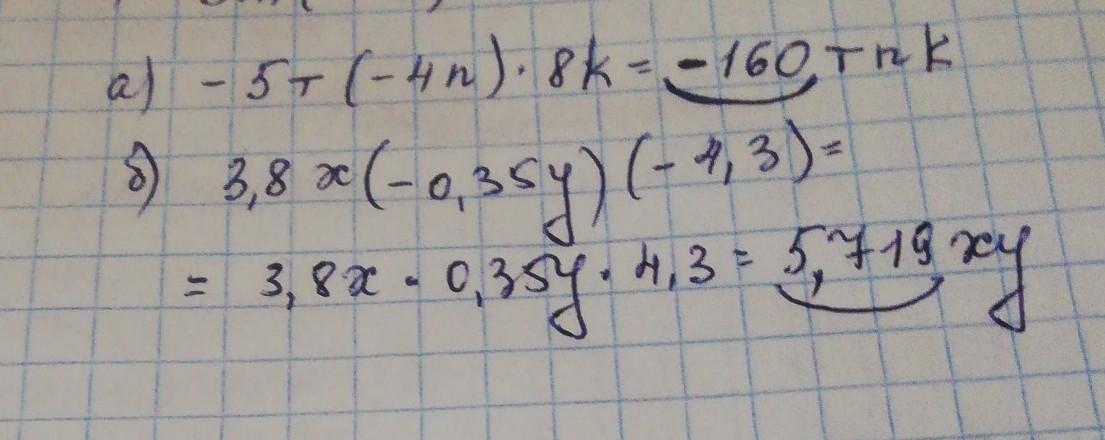 а) - 5т (- 4n) · 8k = -160 т n k
б) 3,8 x (- 0,35y) (- 4,3) =
= 3,8x · 0,35y · 4,3 = 5,719 xy